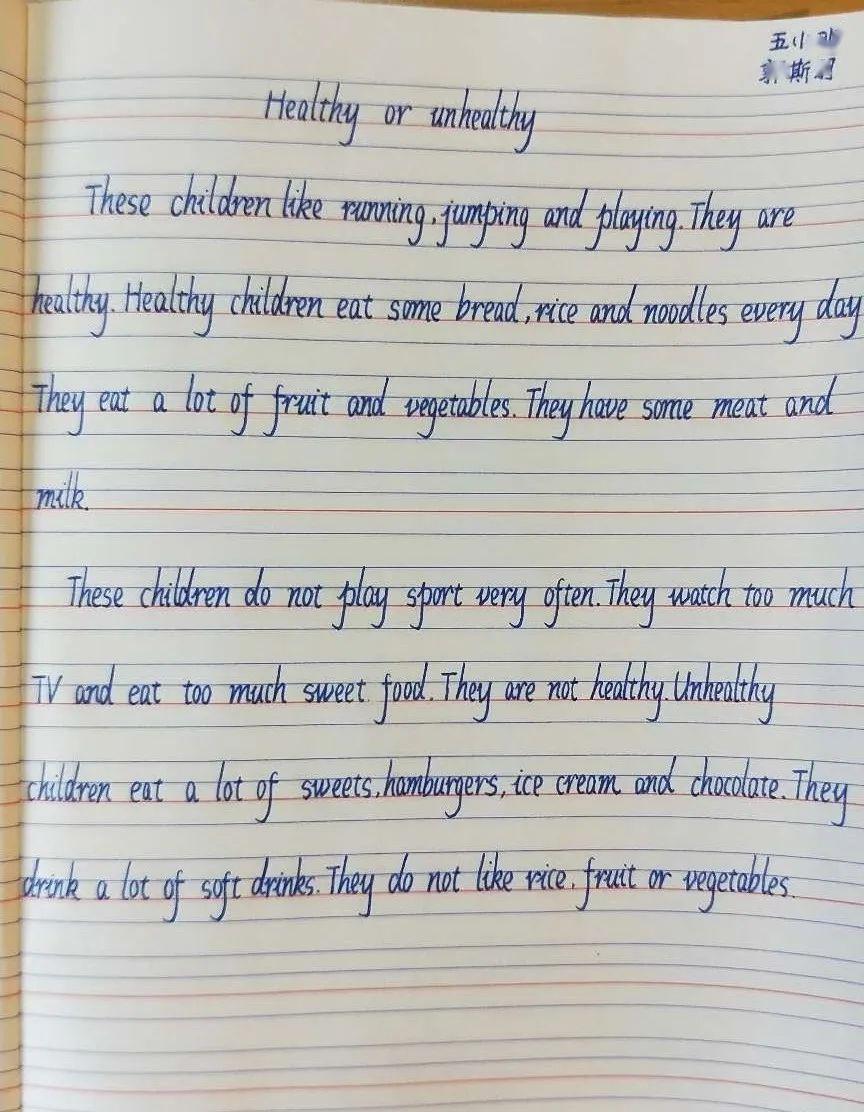 五小
斯
Healthy or unhealthy
These children like running, jumping and playing. They are
healthy. Healthy children eat some bread, rice and noodles every day
They eat a lot of fruit and vegetables. They have some meat and
milk.
These children do not play sport very often. They watch too much
TV and eat too much sweet food. They are not healthy. Unhealthy
children eat a lot of sweets, hamburgers, ice cream and chocolate. They
drink a lot of soft drinks. They do not like rice, fruit or vegetables.